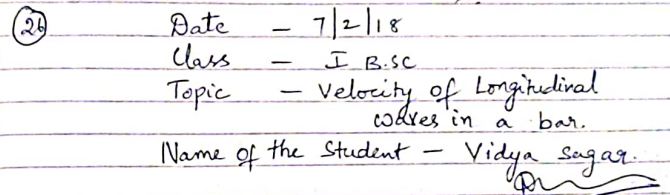 26 Date - 7/2/18
Class - I B.SC
Topic - Velocity of Longitudinal
waves in a bar.
Name of the Student - Vidya sagar.